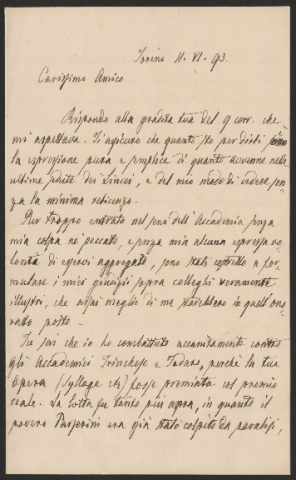 Torino 11. VI. 93.
Carissimo Amico
Rispondo alla gradita tua del 9 corr. che
mi aspettava. Ti assicuro che quanto sto per dirti sarà
la espressione pura e semplice di quanto avvenne nelle
ultime sedute dei Lincei, e del mio modo di vedere sen-
za la minima reticenza.
Pur troppo entrato nel seno dell'Accademia senza
mia colpa nè peccato, e senza mia alcuna espressa vo-
lontà di esservi aggregato, sono stato costretto a for-
mulare i miei giudizii sopra colleghi veramente
illustri, che assai meglio di me starebbero in quell'ono-
rato posto.
Tu sai che io ho combattuto accanitamente contro
gli Accademici Trinchese e Todaro, perchè la tua
Opera (Sylloge etc) fosse premiata col premio
reale. La lotta fu tanto più aspra, in quanto il
povero Passerini era già stato colpito da paralisi,